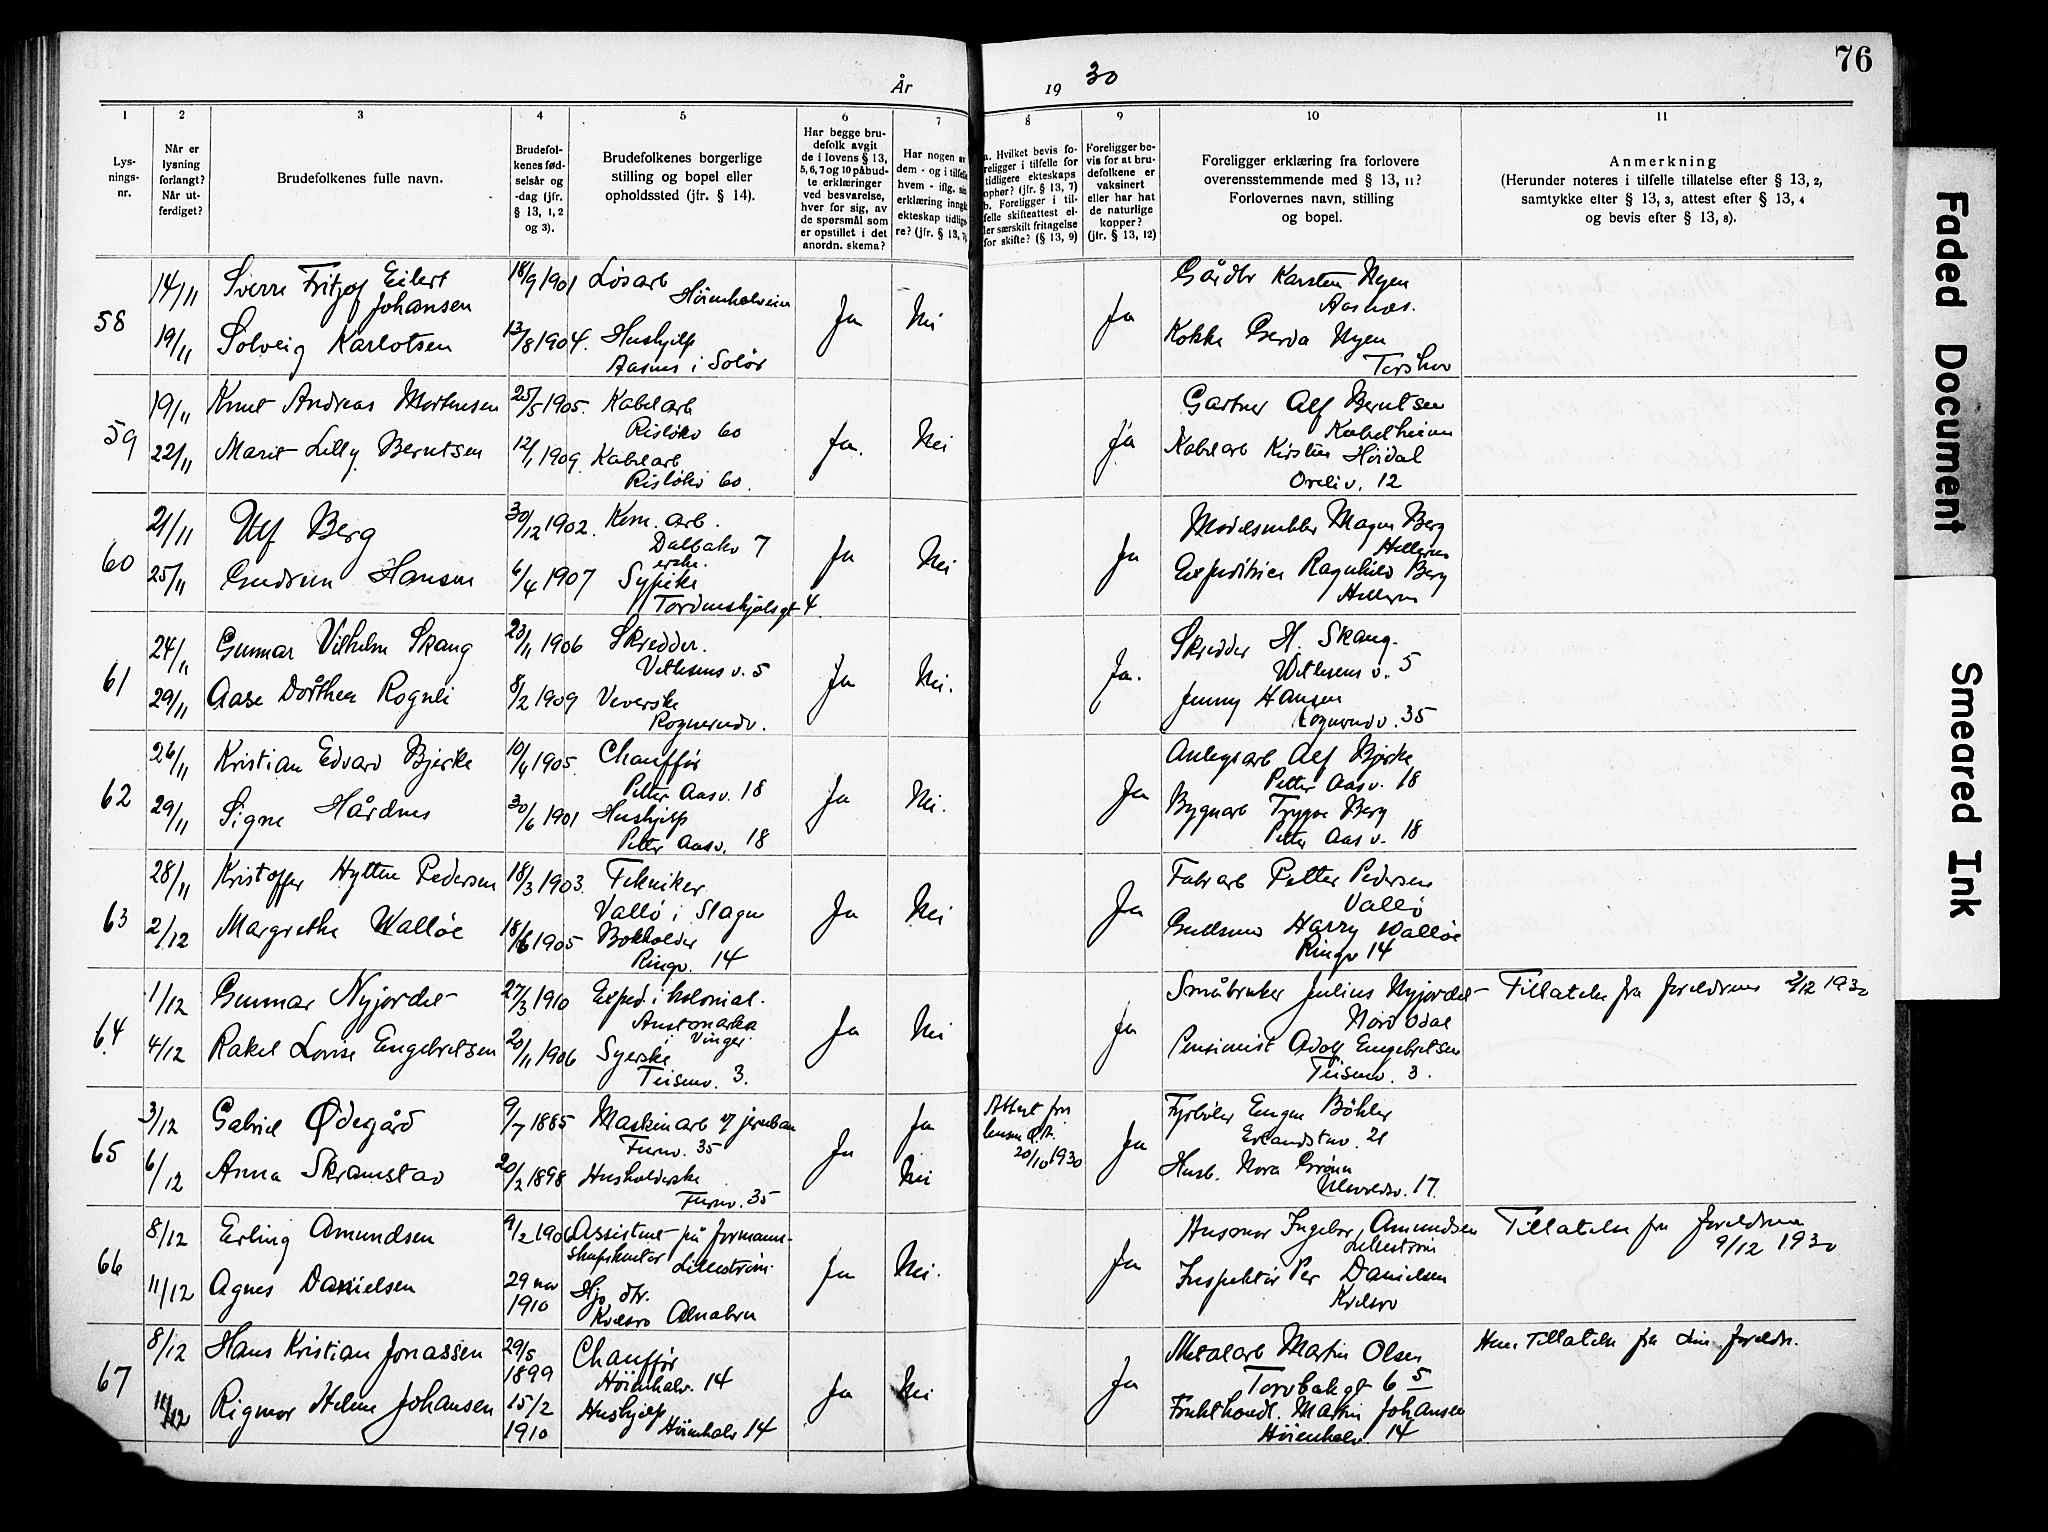 76
År 1930
1 2 3 4 5 6 7 8 9 10 11
Lys-
nings-
nr.
Når er
lysning
forlangt?
Når ut-
ferdiget?
Brudefolkenes fulle navn.
Brudefol-
kenes fød-
selsår og
-dag (jfr.
§ 13, 1, 2
og 3).
Brudefolkenes borgerlige
stilling og bopel eller
opholdssted (jfr. § 14).
Har begge bru-
defolk avgit
de i lovens § 13,
5, 6, 7 og 10 påbud-
te erklæringer
ved besvarelse,
hver for sig, av
de spørsmål som
er opstillet i det
anordn. skema?
Har nogen av
dem - og i tilfelle
hvem - iflg. sin
erklæring inngått
ekteskap tidlige-
re? (jfr. § 13, 7)
a. Hvilket bevis fo-
religger i tilfelle for
tidligere ekteskaps
ophør? (jfr. § 13, 7)
b. Foreligger i til-
felle skifteattest el-
ler særskilt fritagelse
for skifte? (§ 13, 9)
Foreligger be-
vis for at bru-
defolkene er
vaksinert
eller har hat
de naturlige
kopper?
(jfr. § 13, 12)
Foreligger erklæring fra forlovere
overensstemmende med § 13, 11?
Forlovernes navn, stilling
og bopel.
Anmerkning
(Herunder noteres i tilfelle tillatelse efter § 13, 2,
samtykke efter § 13, 3, attest efter § 13, 4
og bevis efter § 13, 8).
58
14/11 Sverre Fritjof Eilert 18/9 1901 Løsarb
Johansen Høienhalveien Ja Nei Ja
19/11 Solveig Karlotsen 13/8 1904. Hushjelp
Aasnes i Solør
Gårdbr Karsten Nyen
Aasnes.
Kokke Gerda Nyen
Torshov
59
19/11 Knut Andreas Mortensen 25/5 1905. Kabelarb
Risløkv 60 Ja. Nei Ja
22/11 Marit Lilly Berntsen 12/1 1909. Kabelarb
Risløkv 60.
Gartner Alf Berntsen
Kabelheimen
Kabelarb Kirsten Høidal
Oreliv. 12
60
21/11 Ulf Berg 30/12 1902. Kem. arb.
Dalbakv 7 Ja Nei Ja
25/11 Gudrun Hansen 6/4 1907 Sypike
erske.
Tordenskjolsgt 4.
Modelsnekker Magn Berg
Hellerud
Expeditrice Ragnhild Berg
Hellerud
61
24/11 Gunnar Vilhelm Skaug 23/11 1906 Skredder.
Vetlesens v. 5 Ja Nei. Ja.
29/11 Aase Dorthea Rognli 8/2 1909 Veverske
Rognerudv.
Skredder H. Skaug.
Vetlesens v. 5
Jenny Hansen
Rognerudv. 35
62
26/11 Kristian Edvard Bjerke 10/4 1905. Chauffør
Petter Aasv. 18 Ja Nei. Ja
29/11 Signe Hårdnes 30/6 1901 Hushjelp
Petter Aasv. 18
Anlegsarb Alf Bjerke
Petter Aasv. 18
Bygnarb Trygve Berg
Petter Aas v. 18
63
28/11 Kristoffer Hytten Pedersen 18/3 1903. Tekniker
Vallø i Slagen Ja Nei Ja
2/12 Margrethe Walløe 18/6 1905 Bokholder
Ringv. 14
Fabrarb Petter Pedersen
Vallø
Gullsmed Harry Walløe
Ringv 14
64
1/12 Gunnar Nyjordet 27/3 1910 Exped. i kolonial.
Austmarka
Vinger Ja Nei Ja
4/12 Rakel Lovise Engebretsen 20/11 1906 Syerske
Teisenv. 3.
Småbruker Julius Nyjordet
Nord Odal
Pensionist Adolf Engebretsen
Teisenv. 3.
Tillatelse fra foreldrene 2/12 1930
65
3/12 Gabriel Ødegård 9/7 1885 Maskinarb v/ jernban
Furuv. 35 Ja Ja
6/12 Anna Skramstad 20/2 1898 Husholderske
Furuv. 35 Nei
Attest fra
20/10 1930 Ja
Fyrbøter Eugen Böhler
Erlandstuv. 21
Husb. Nora Grönn
Ulevoldsv. 17.
66
8/12 Erling Amundsen 9/2 1906 Assistent på formann-
skapskontor Lillestrøm. Ja Nei. Ja
11/12 Agnes Danielsen 29 nov
1910 Hj. dtr.
Kvelsro Alnabru
Husmor Ingeborg Amundsen
Lillestrøm
Inspektør Per Danielsen
Kvelsro
Tillatelse fra foreldrene
9/12 1930
67
8/12 Hans Kristian Jonassen 29/5
1899 Chauffør
Høienhalv. 14 Ja Nei Ja
11/12 Rigmor Helene Johansen 15/2
1910 Hushjelp
Høienhalv 14
Metalarb Martin Olsen
Torvbakgt 6 5
Frukthandl. Martin Johansen
Høienhalv. 14
Hun Tillatelse fra sine foreldre.
Faded Document
Smeared Ink